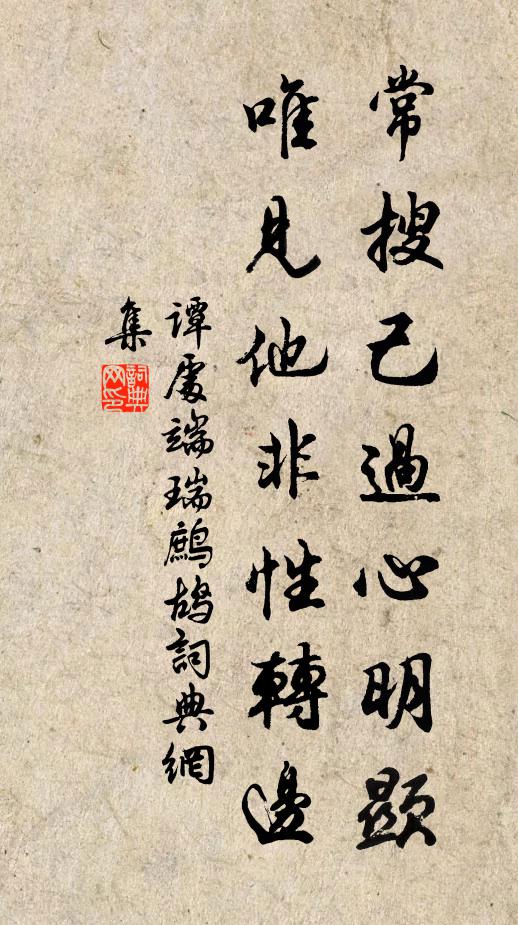 常搜己過心明顯
唯見他非性轉邊
譚處端瑞鷓鴣詞典網
集
詞典
网印